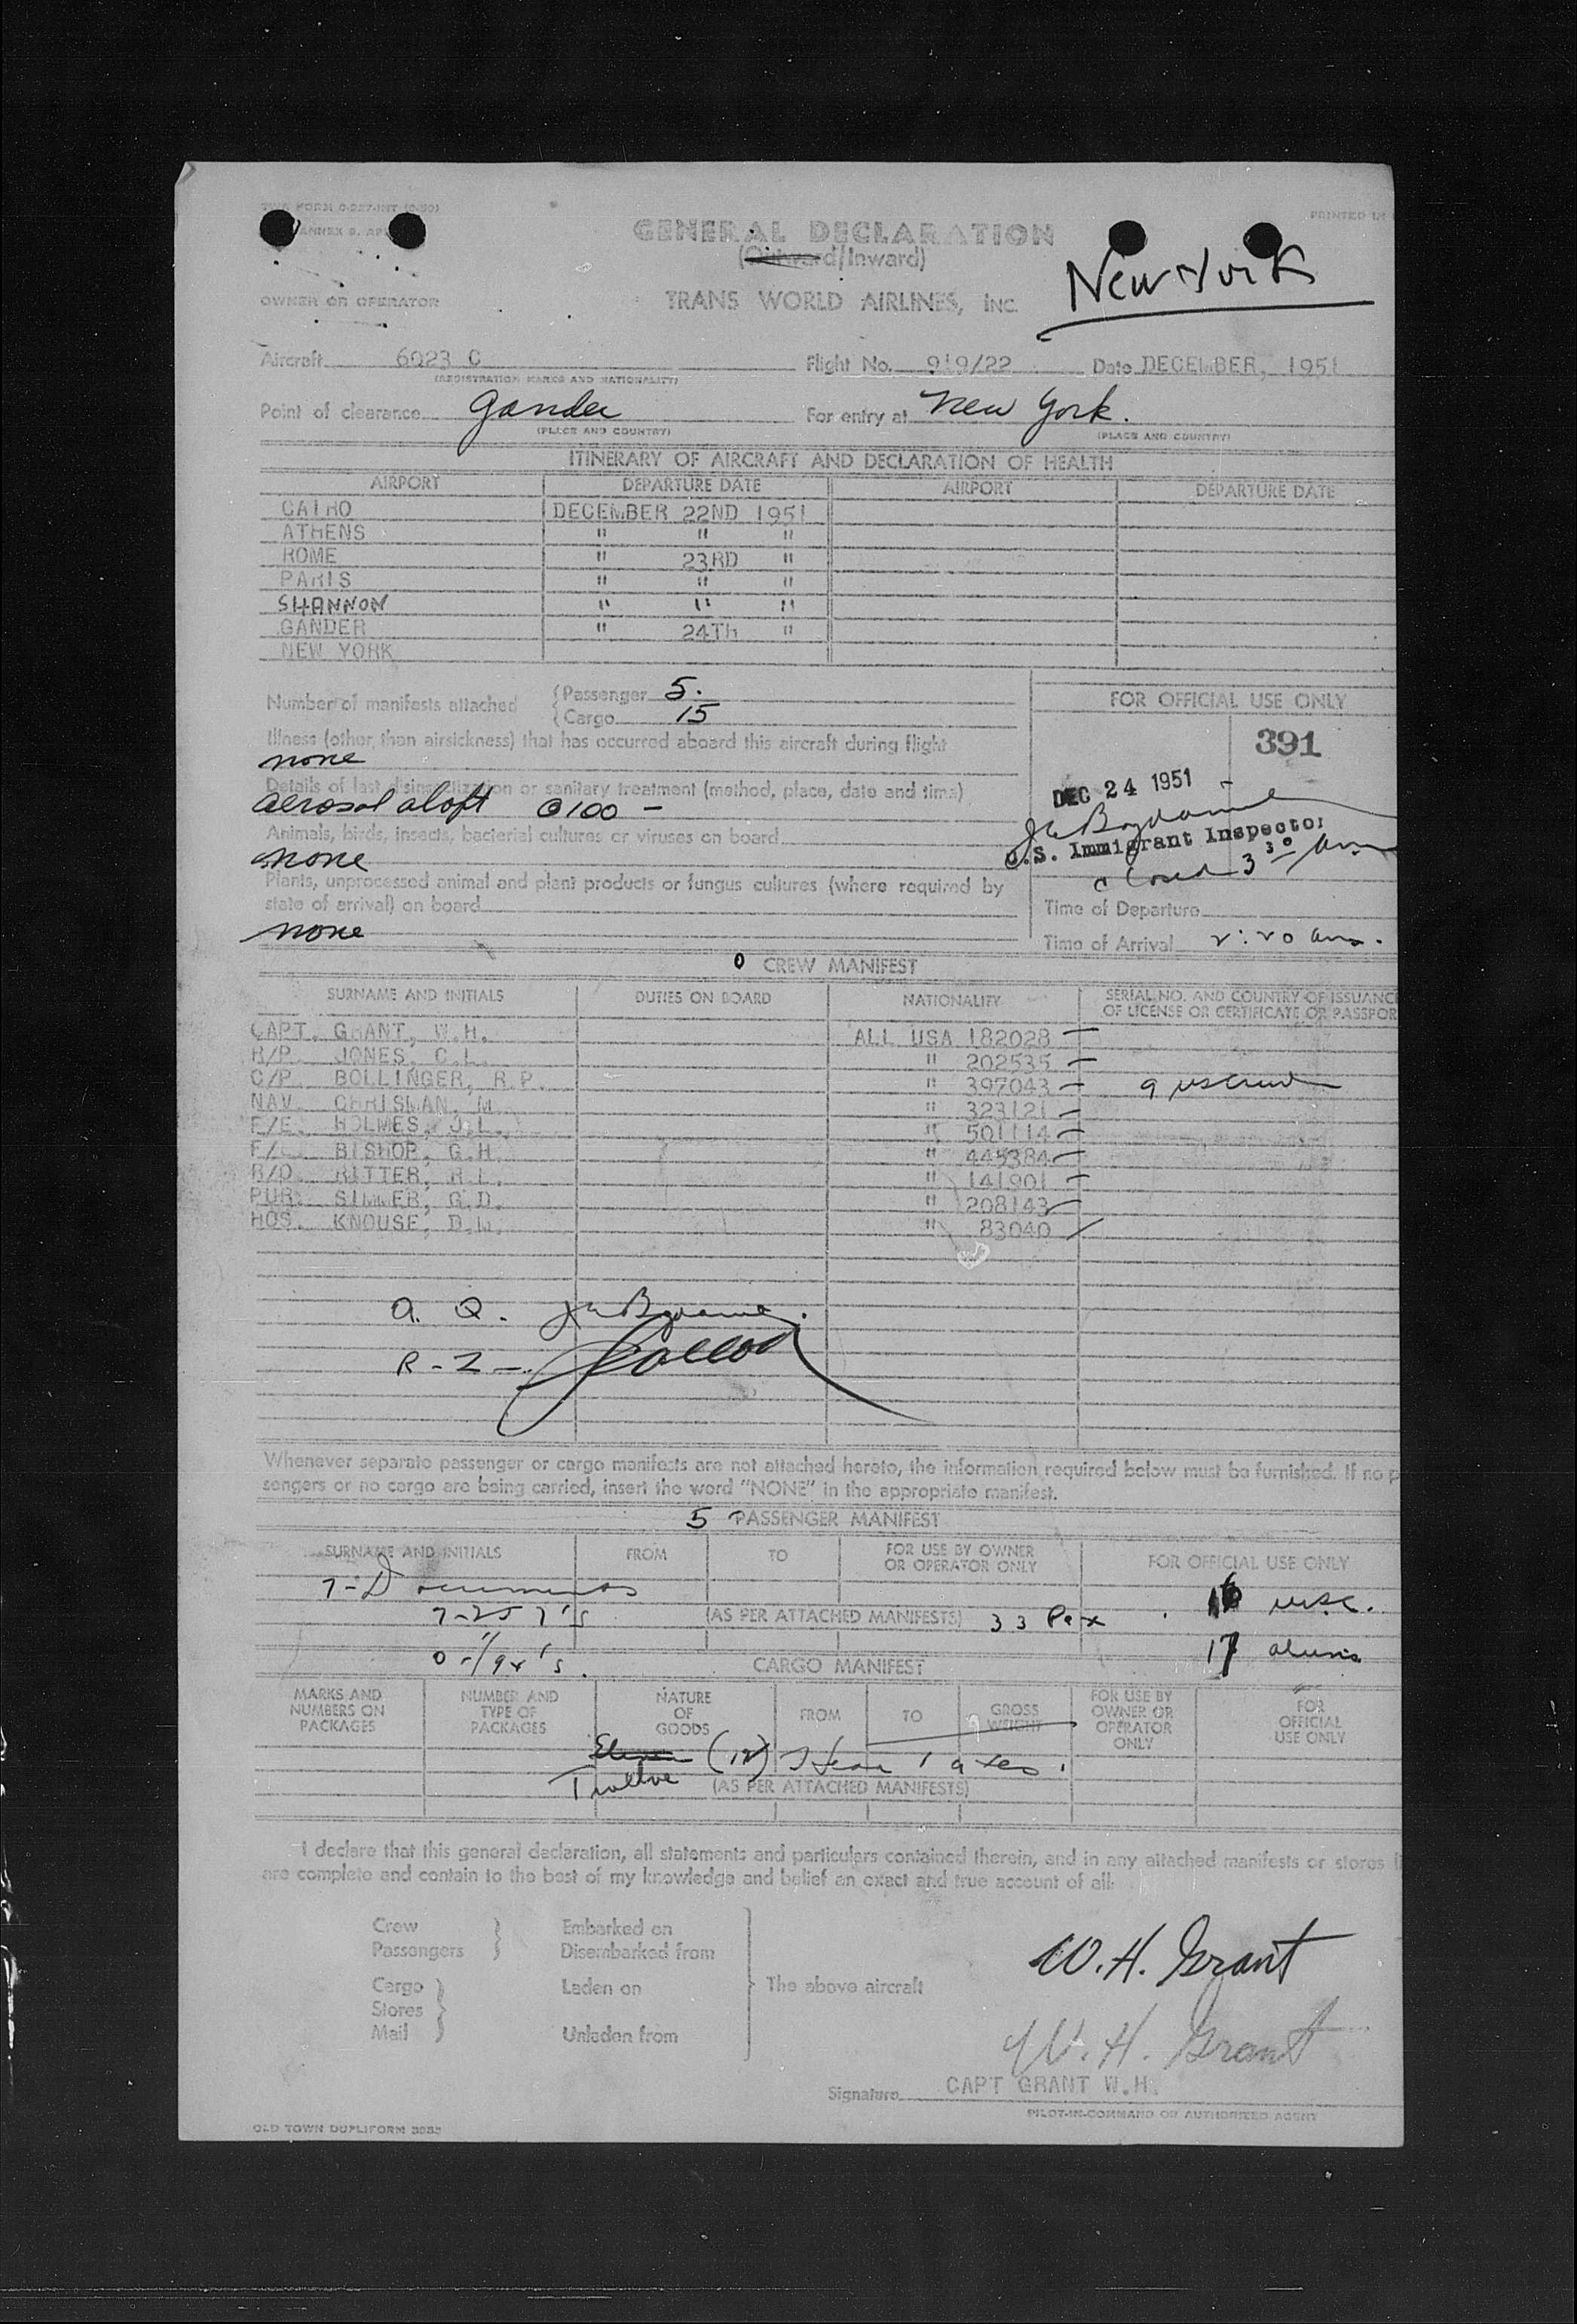 GENERAL DECLARATION
(Outward/Inward)
New York
OWNER OR OPERATOR TRANS WORLD AIRLINES, INC.
PRINTED IN
Aircraft 6023 C Flight No. 919/22 Date DECEMBER, 1951
(REGISTRATION MARKS AND NATIONALITY)
Point of clearance Gander For entry at New York.
(PLACE AND COUNTRY) (PLACE AND COUNTRY)
ITINERARY OF AIRCRAFT AND DECLARATION OF HEALTH
AIRPORT DEPARTURE DATE AIRPORT DEPARTURE DATE
CAIRO DECEMBER 22ND 1951
ATHENS " " "
ROME " 23RD "
PARIS " " "
SHANNON " " "
GANDER " 24TH "
NEW YORK
Number of manifests attached {Passenger 5.
{Cargo 15
FOR OFFICIAL USE ONLY
391
Illness (other than airsickness) that has occurred aboard this aircraft during flight
none
Details of last disinsectization or sanitary treatment (method, place, date and time)
aerosol aloft 0100 -
DEC 24 1951
U.S. Immigrant Inspector
closed 3 30 am
Animals, birds, insects, bacterial cultures or viruses on board
none
Plants, unprocessed animal and plant products or fungus cultures (where required by
state of arrival) on board
none
Time of Departure
Time of Arrival 2:20 am.
0 CREW MANIFEST
SURNAME AND INITIALS DUTIES ON BOARD NATIONALITY SERIAL NO. AND COUNTRY OF ISSUANCE
OF LICENSE OR CERTIFICATE OR PASSPOR
CAPT. GRANT, W.H. ALL USA 182028
R/P. JONES, C.L. " 202535
C/P. BOLLINGER, R.P. " 397043 9 uscrew
NAV. CHRISMAN, M. " 323121
F/E. HOLMES, J.L. " 501114
F/E. BISHOP, G.H. " 445384
R/O. RITTER, R.L. " 141901
PUR. SIMMER, G.D. " 208143
HOS. KNOUSE, D.W. " 83040
a. Q.
R-2-
Whenever separate passenger or cargo manifests are not attached hereto, the information required below must be furnished. If no p
sengers or no cargo are being carried, insert the word "NONE" in the appropriate manifest.
5 PASSENGER MANIFEST
SURNAME AND INITIALS FROM TO FOR USE BY OWNER
OR OPERATOR ONLY FOR OFFICIAL USE ONLY
7-Documents
16 usc.
7-257's (AS PER ATTACHED MANIFESTS) 33 Pax
17 aliens
CARGO MANIFEST
MARKS AND
NUMBERS ON
PACKAGES
NUMBER AND
TYPE OF
PACKAGES
NATURE
OF
GOODS
FROM TO GROSS
WEIGHT
FOR USE BY
OWNER OR
OPERATOR
ONLY
FOR
OFFICIAL
USE ONLY
Eleven (12)
Twelve (AS PER ATTACHED MANIFESTS)
I declare that this general declaration, all statements and particulars contained therein, and in any attached manifests or stores
are complete and contain to the best of my knowledge and belief an exact and true account of all:
Crew Embarked on
Passengers Disembarked from
Cargo Laden on The above aircraft
Stores
Mail Unladen from
W. H. Grant
W. H. Grant
Signature CAPT GRANT W.H.
PILOT-IN-COMMAND OR AUTHORIZED AGENT
OLD TOWN DUPLIFORM